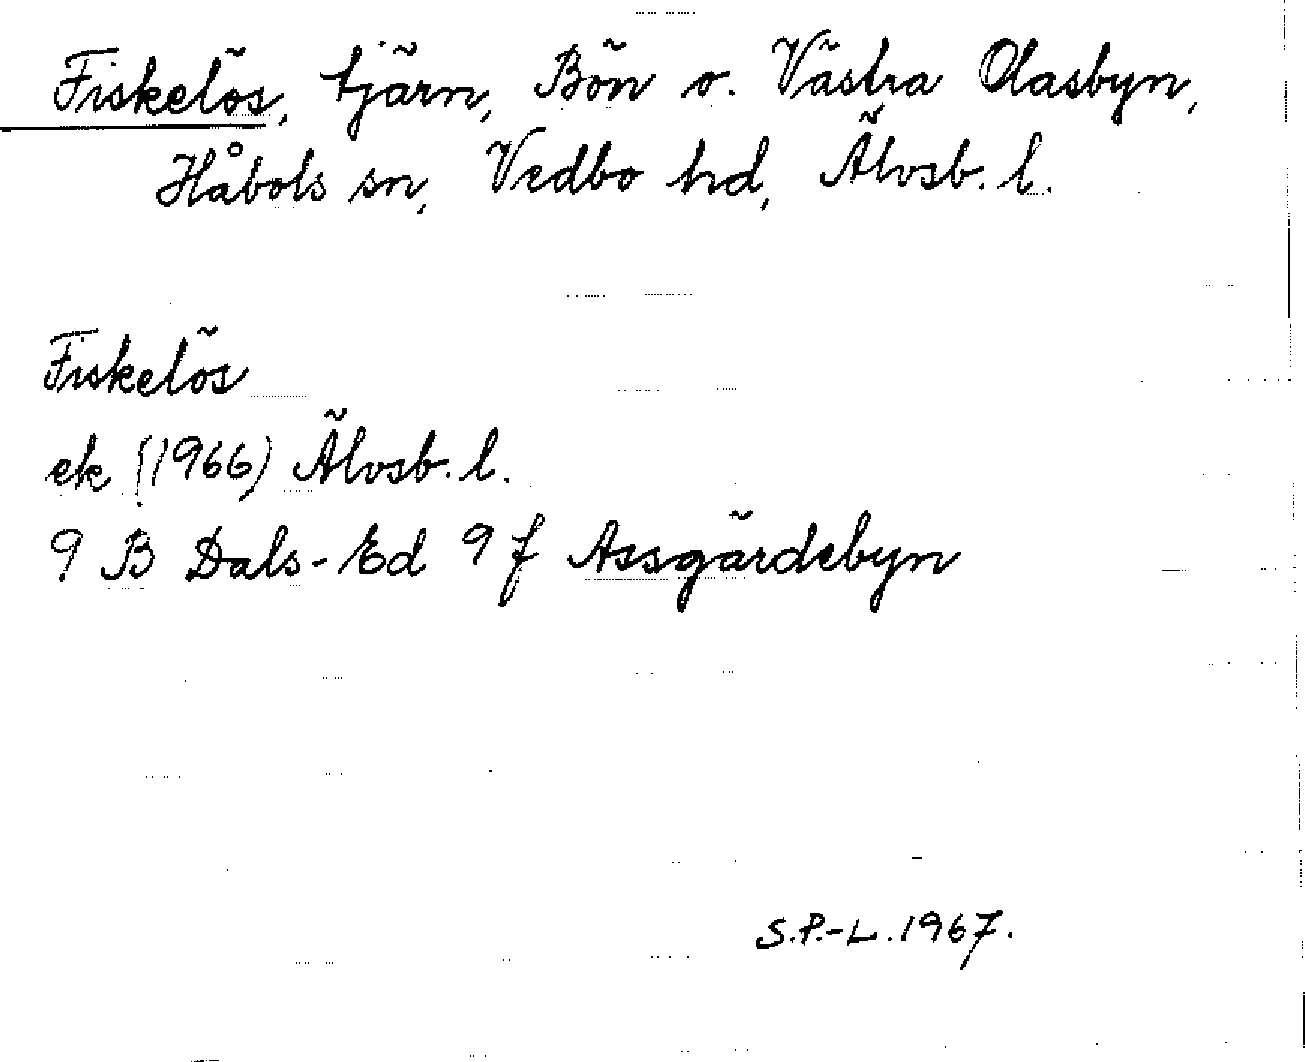 Fiskelös, tjärn, Bön o. Västra Olasbyn,
Håbols sn, Vedbo hd, Älvsb. l.
Fiskelös
ek (1966) Älvsb. l.
9 B Dals-Ed 9 f Assgärdebyn
S.P.-L. 1967.